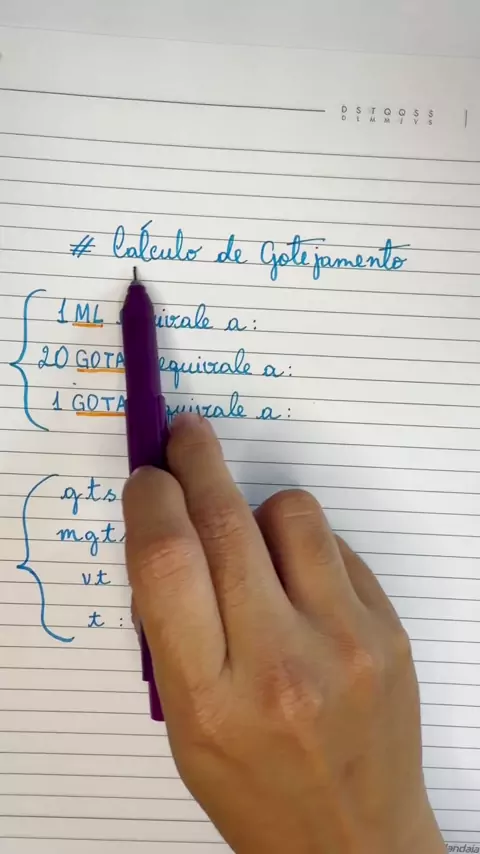 D S T Q Q S S
D L M M J V S
# Cálculo de Gotejamento
1 ML equivale a:
20 GOTA equivale a:
1 GOTA equivale a:
gts
mgts
vt
t :